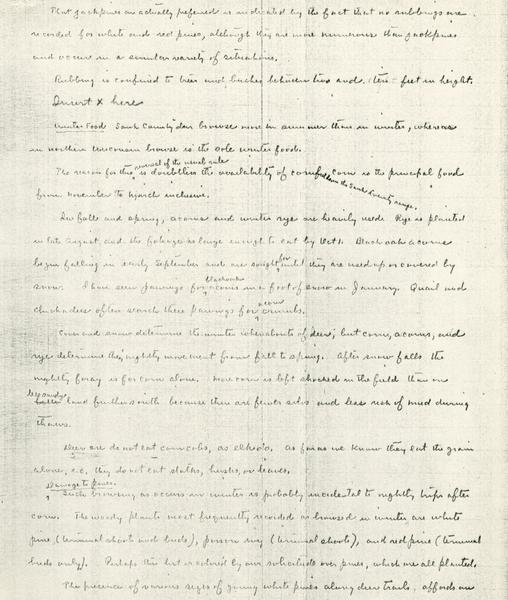 That jackpines are actually preferred is indicated by the fact that no rubbings are
recorded for white and red pines, although they are more numerous than jackpines
and occur in a similar variety of situations.
Rubbing is confined to trees and bushes between two and ten feet in height.
Insert x here
Winter Food Sauk County deer browse more in summer than in winter, whereas
in northern Wisconsin browse is the sole winter food.
The reason for this reversal of the usual rule is doubtless the availability of corn in the Sauk County range. corn is the principal food
from November to March inclusive.
In fall and spring, acorns and winter rye are heavily used. Rye is planted
in late August and the foliage is large enough to eat by Oct 1. Black oak acorns
begin falling in early September and are sought for until they are used up or covered by
snow. I have seen pawings for acorns in a foot of snow in January. Quail and
chickadees often search these pawings for acorn crumbs.
Corn and snow determine the winter whereabouts of deer, but corn, acorns, and
rye determine their nightly movement from fall to spring. After snow falls the
nightly foray is for corn alone. More corn is left shocked in the field than on
land further south because there are fewer silos and less risk of mud during
thaws.
Deer do not eat corncobs, as elk do. As far as we know they eat the grain
alone, i.e. they do not eat stalks, husks, or leaves.
Damage to Pines.
Such browsing as occurs in winter is probably incidental to nightly trips after
corn. The woody plants most frequently recorded as browsed in winter are white
pine (terminal shoots and buds), poison ivy (terminal shoots), and red pine (terminal
buds only). Perhaps this list is colored by our solicitude over pines, which are all planted.
The presence of various sizes of young white pines along deer trails, affords an